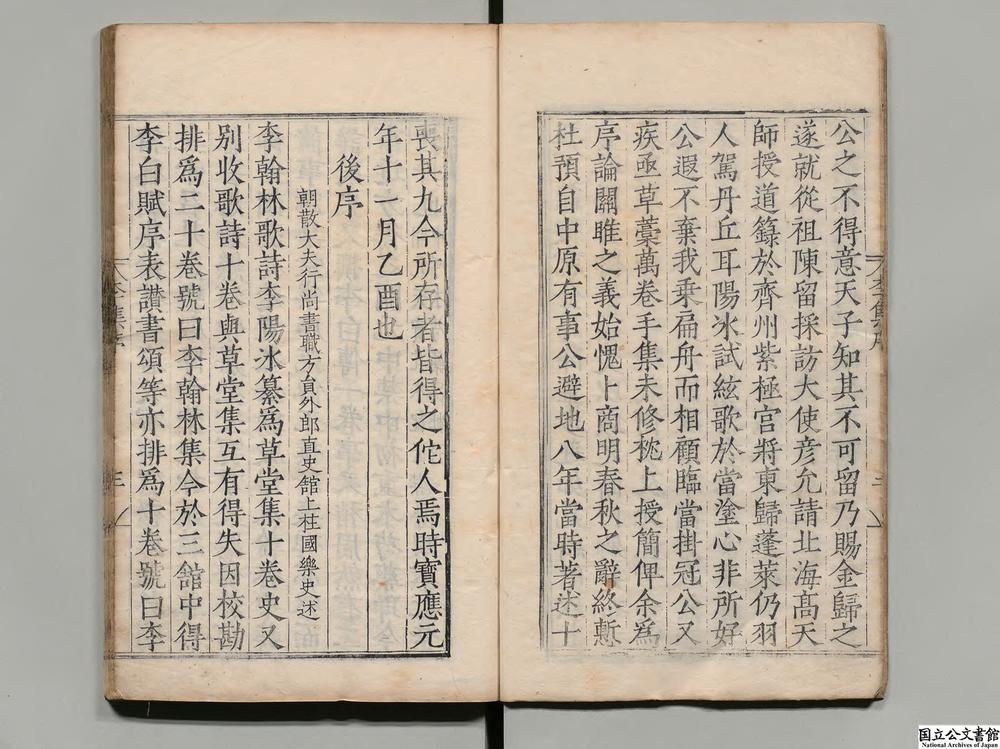 公之不得意天子知其不可留乃賜金歸之
遂就從祖陳留採訪大使彦允請北海髙天
師授道籙於齊州紫極宮將東歸蓬萊仍羽
人駕丹丘耳陽冰試絃歌於當塗心非所好
公遐不棄我乘扁舟而相顧臨當掛冠公又
疾亟草藳萬卷手集未修枕上授簡俾余爲
序論關雎之義始愧卜商明春秋之辭終慙
杜預自中原有事公避地八年當時著述十
喪其九今所存者皆得之佗人焉時寳應元
年十一月乙酉也
後序
朝散大夫行尚書職方員外郎直史館上柱國樂史述
李翰林歌詩李陽冰纂爲草堂集十卷史又
別收歌詩十卷與草堂集互有得失因校勘
排爲二十卷號曰李翰林集今於三舘中得
李白賦序表讃書頌等亦排爲十卷號曰李
国立公文書館
National Archives of Japan